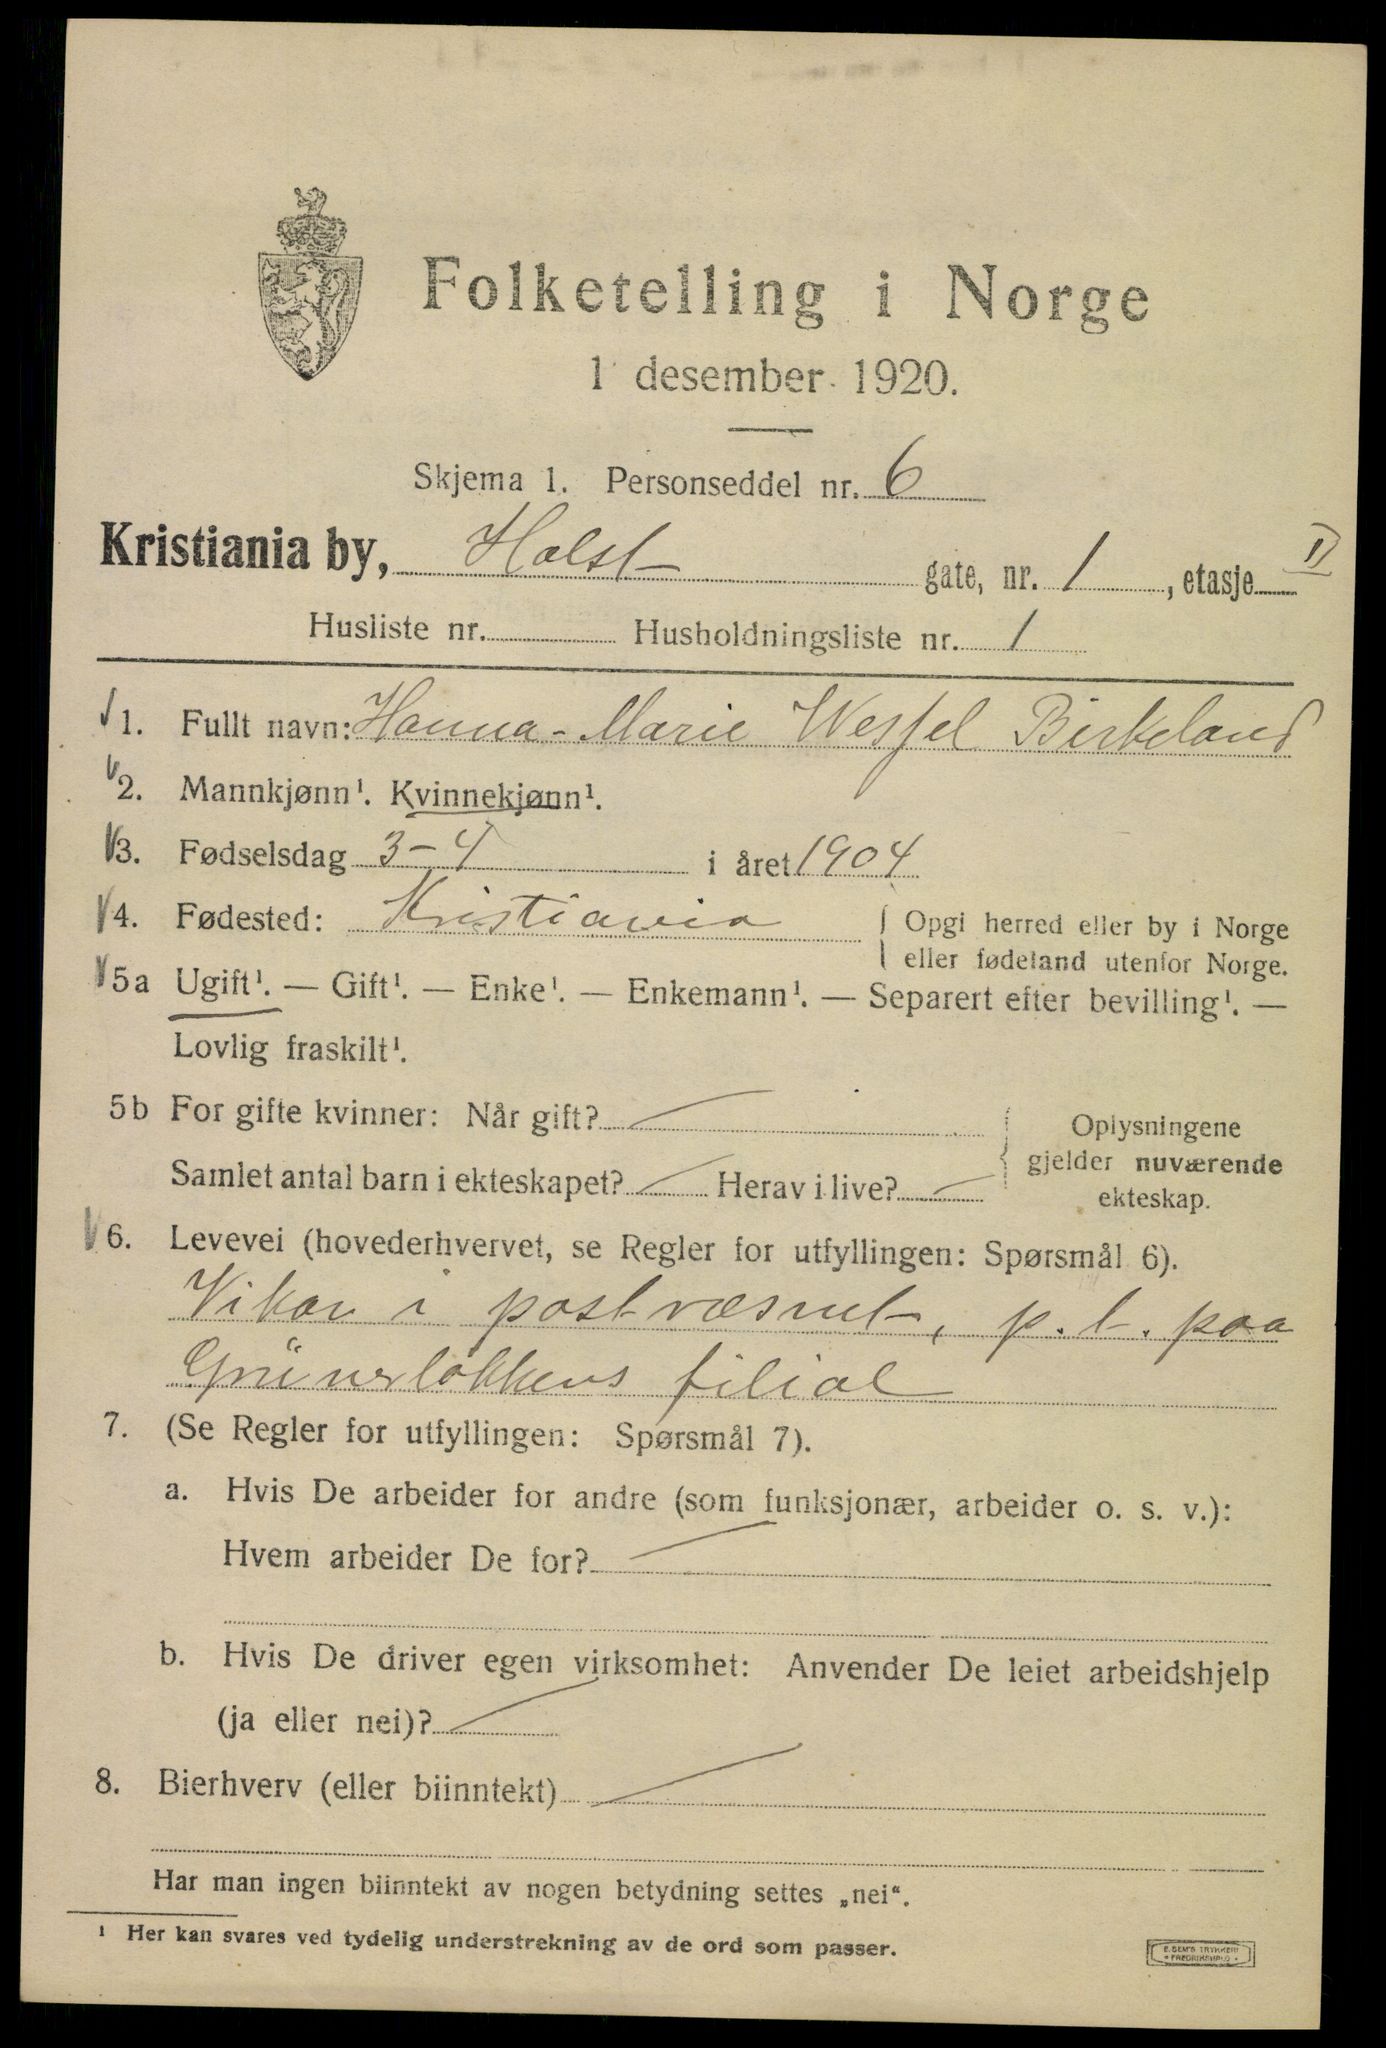 Folketelling i Norge
1 desember 1920.
Skjema 1. Personseddel nr. 6
Kristiania by, Holst gate, nr. 1, etasje II
Husliste nr. Husholdningsliste nr. 1
1. Fullt navn: Hanna-Marie Wessel Birkeland
2. Mannkjønn¹. Kvinnekjønn¹.
3. Fødselsdag 3-4 i året 1904
4. Fødested: Kristiania Opgi herred eller by i Norge
eller fødeland utenfor Norge.
5a Ugift¹. — Gift¹. — Enke¹. — Enkemann¹. — Separert efter bevilling¹. —
Lovlig fraskilt¹.
5b For gifte kvinner: Når gift? —
Samlet antal barn i ekteskapet? — Herav i live? —
Oplysningene
gjelder nuværende
ekteskap.
6. Levevei (hovederhvervet, se Regler for utfyllingen: Spørsmål 6).
Vikar i postvæsnet, p.t. paa
Grünerløkkens filial
7. (Se Regler for utfyllingen: Spørsmål 7).
a. Hvis De arbeider for andre (som funksjonær, arbeider o. s. v.):
Hvem arbeider De for? —
b. Hvis De driver egen virksomhet: Anvender De leiet arbeidshjelp
(ja eller nei)? —
8. Bierhverv (eller biinntekt) —
Har man ingen biinntekt av nogen betydning settes „nei".
¹ Her kan svares ved tydelig understrekning av de ord som passer.
E. SEM'S TRYKKERI
• FREDRIKSHALD •